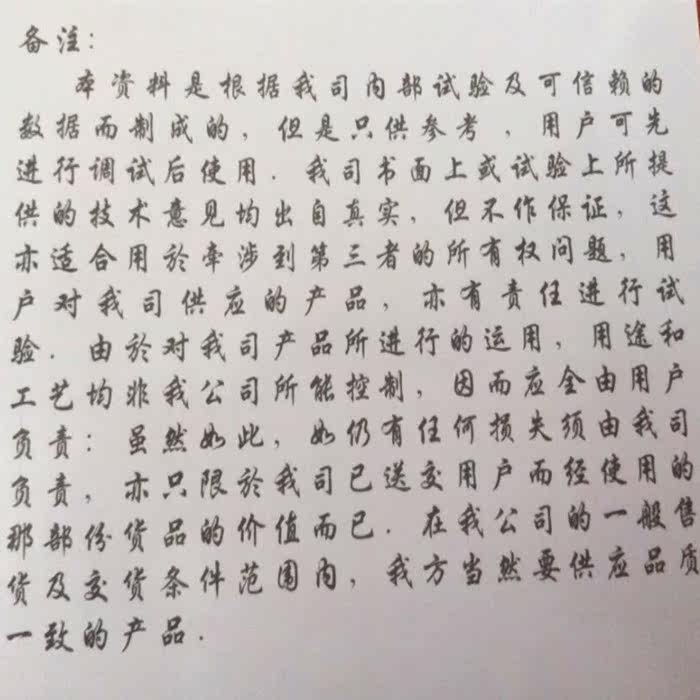 备注：
本资料是根据我司内部试验及可信赖的
数据而制成的，但是只供参考，用户可先
进行调试后使用．我司书面上或试验上所提
供的技术意见均出自真实，但不作保证，这
亦适合用於牵涉到第三者的所有权问题，用
户对我司供应的产品，亦有责任进行试
验．由於对我司产品所进行的运用，用途和
工艺均非我公司所能控制，因而应全由用户
负责：虽然如此，如仍有任何损失须由我司
负责，亦只限於我司已送交用户而经使用的
那部份货品的价值而已．在我公司的一般售
货及交货条件范围内，我方当然要供应品质
一致的产品．